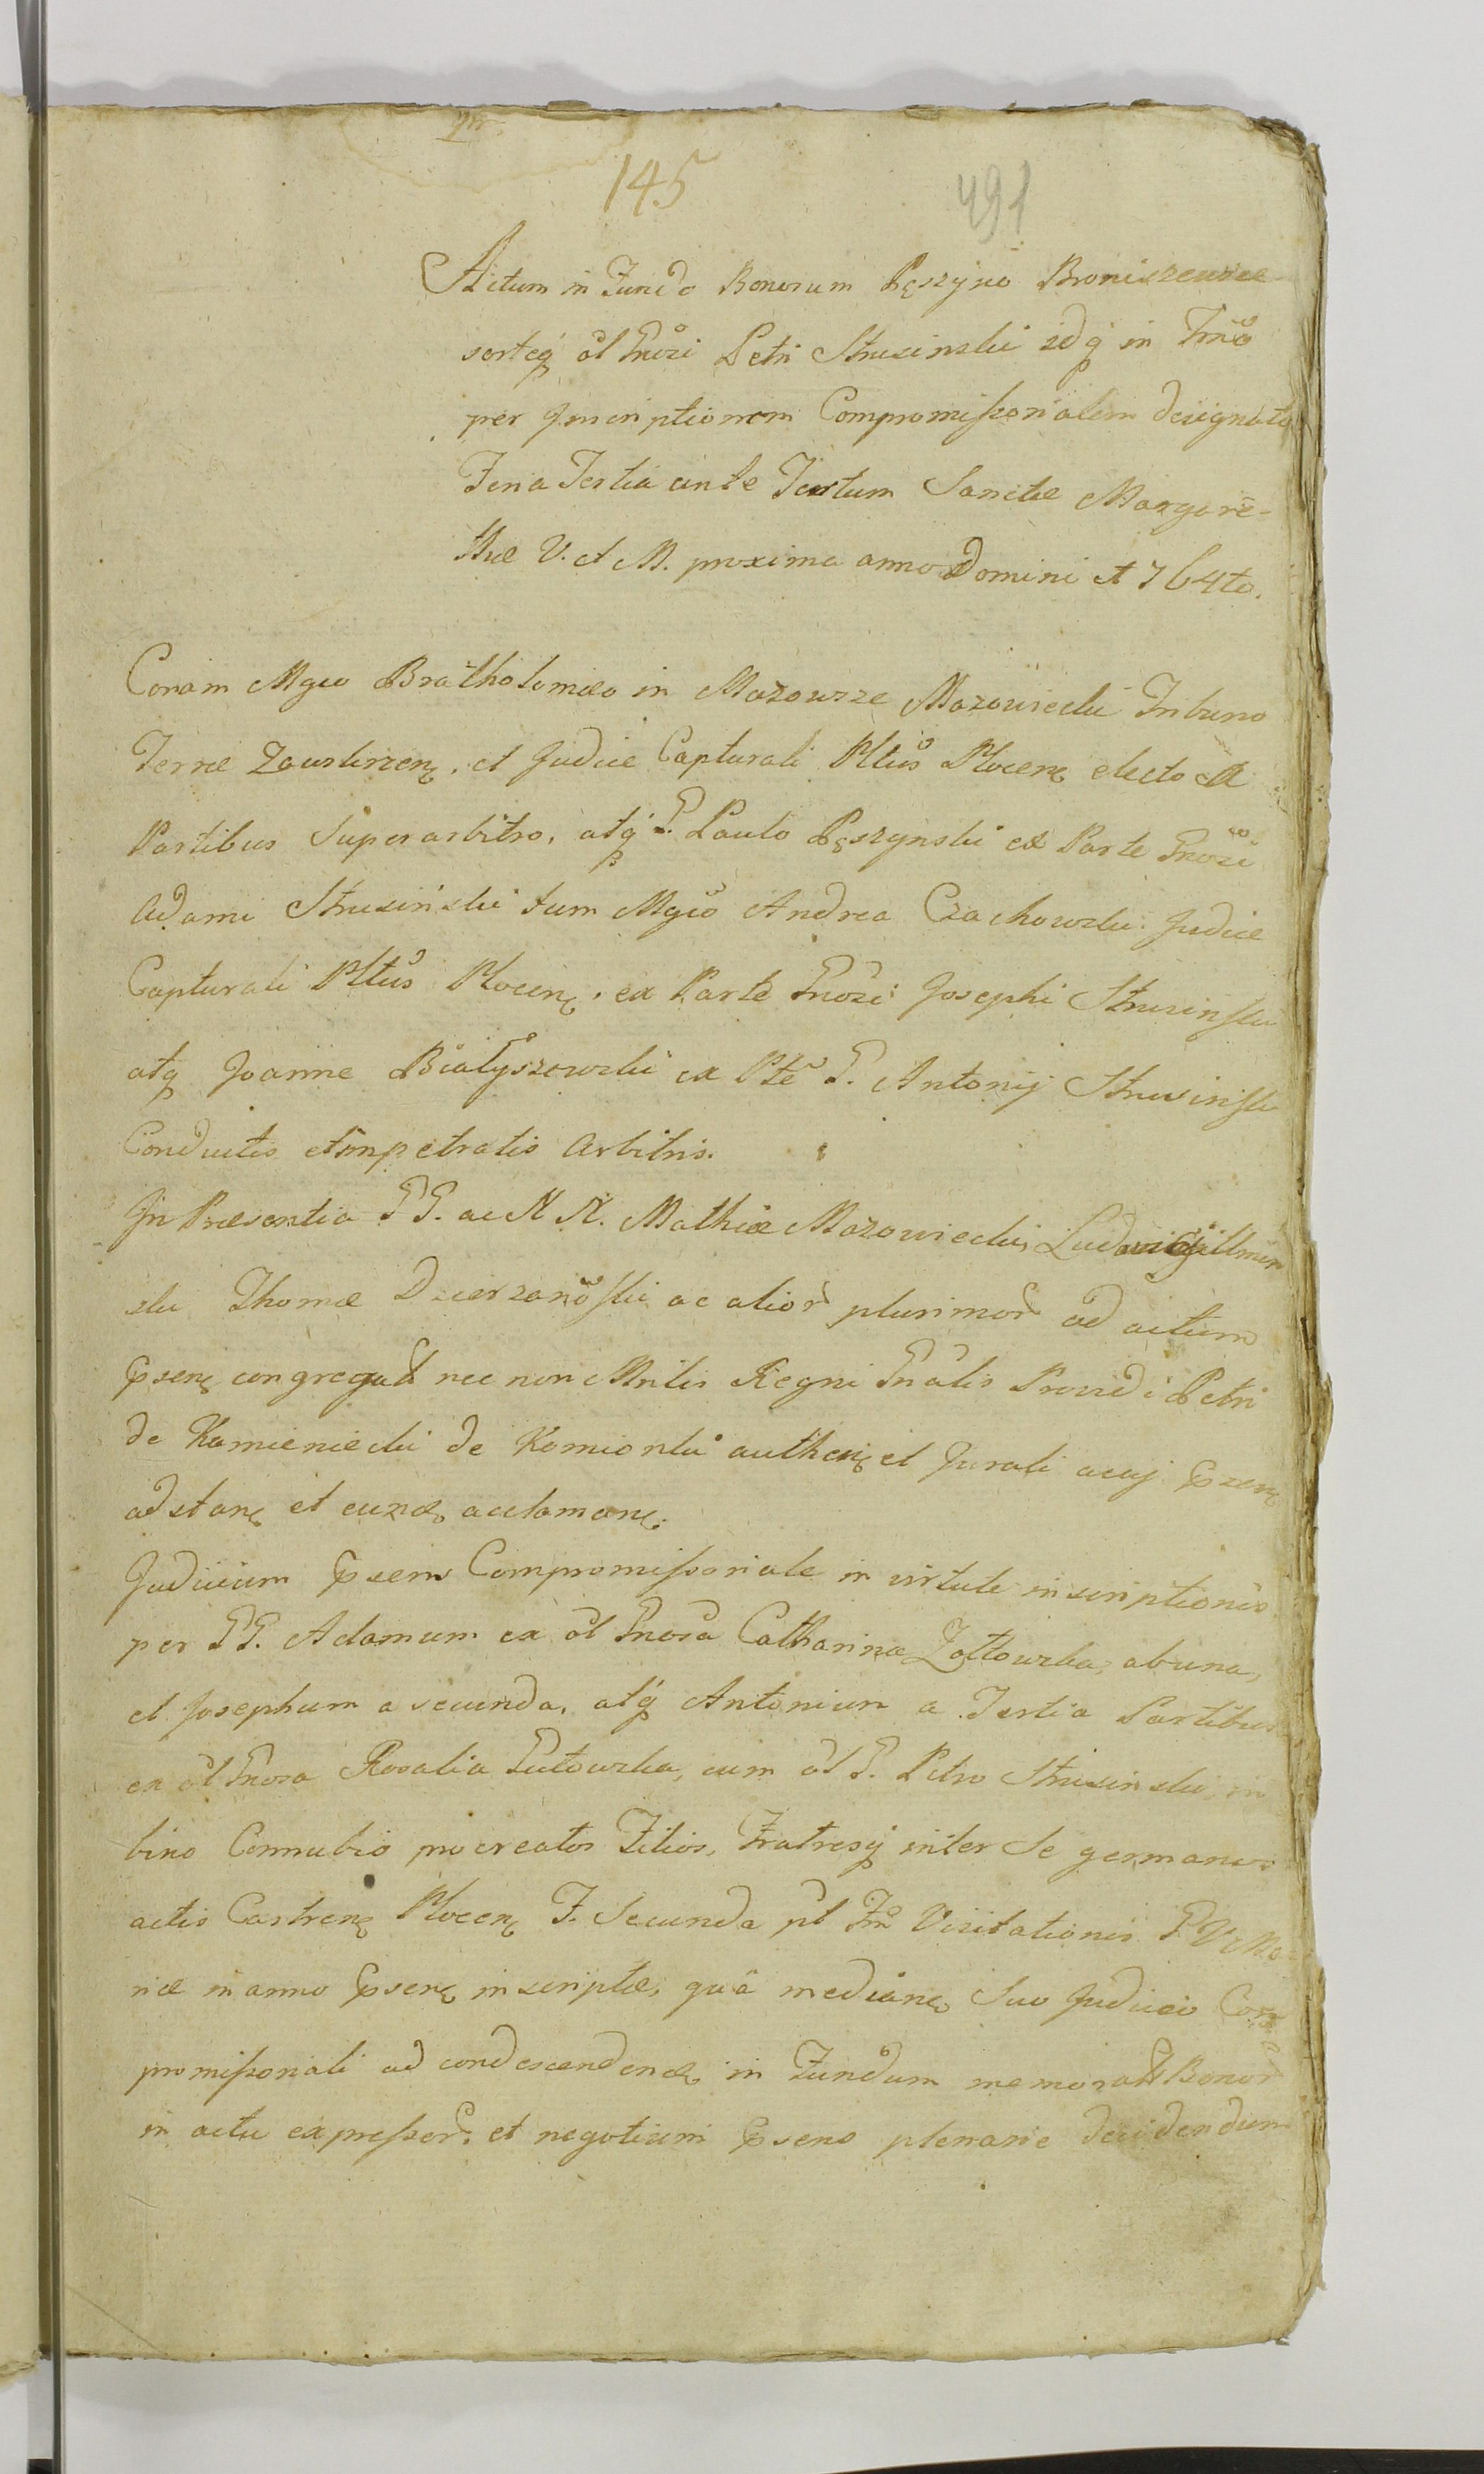 145
491
Actum in Fundo Bonorum Pęszyno Broniszewice
sorteq ol Gnosi Petri Strusinski idq in Tmo
per Inscriptionem Compromissorialem designato
Feria Tertia ante Festum Sanctæ Margare-
thæ V. et M. proxima anno Domini 1764to.
Coram Mgco Bratholomæo in Mazowsze Mazowiecki Tribuno
Terræ Zawkrzen. et Judice Capturali Pltus Plocen electo A
Partibus Superarbitro, atq G. Paulo Pęszynski ex Parte Gnosi
Adami Strusinski tum Mgco Andrea Czachowski Judice
Capturali Pltus Plocen. ex Parte Gnosi Josephi Strusinski
atq Joanne Białyszewski ex Pte G. Antonij Strusinski
Conductis et impetratis Arbitris.
In Præsentia GG. ac NN. Mathiæ Mazowiecki, Ludovici
ski Thomæ Dzierzanoski ac alior plurimor ad actum
psen congregat nec non Mnlis Regni Gnalis Providi Petri
de Kamieniecki de Komionki authen et Jurati acuj psen
adstan et eund acclaman.
Judicium psens Compromissoriale in virtute inscriptionis
per GG. Adamum ex ol Gnosa Catharina Żołtowska, ab una,
et Josephum a secunda, atq Antonium a Tertia Partibus
ex ol Gnosa Rosalia Gutowska, cum ol G. Petro Strusinski, in
bino Connubio procreatos Filios, Fratresq inter Se germanos
actis Castren Plocen F. Secunda pt Fm Visitationis B V Ma-
riæ in anno psen inscriptæ, quâ median Suo Judicio Com
promissoriali ad condescenden in Fundum memorat Bonor
in actu expressor, et negotium psens plenarie decidendum